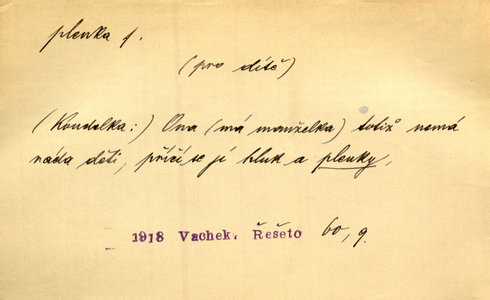 plenka f.
(pro dítě)
(Koudelka:) Ona (má manželka) totiž nemá
ráda děti, příčí se jí hluk a plenky,
1918 Vachek. Řešeto 60, 9.